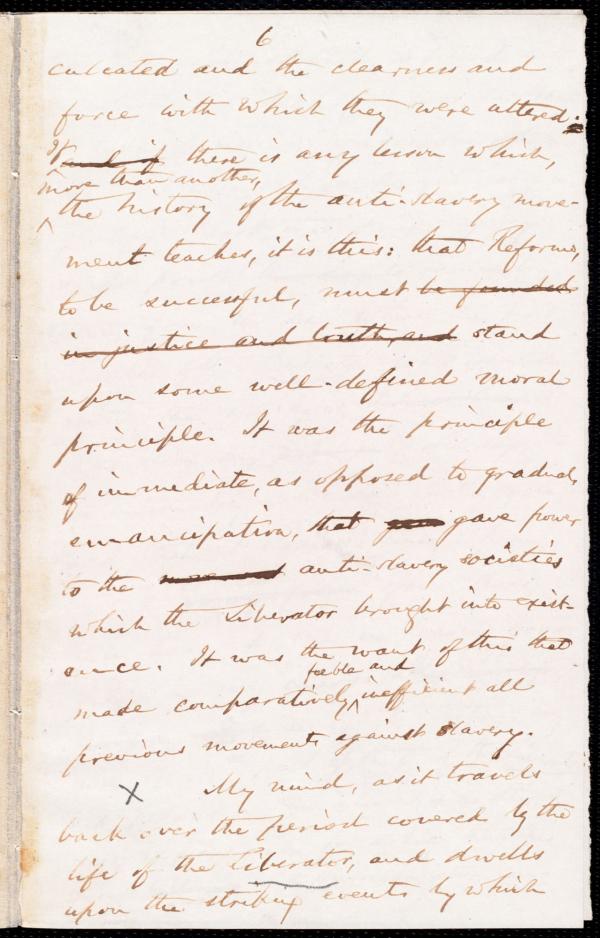 6
culcated and the clearness and
force with which they were uttered.
If and if there is any lesson which,
more than another,
the history of the anti-slavery move-
ment teaches, it is this: that Reforms,
to be successful, must be founded
in justice and truth, and stand
upon some well-defined moral
principle. It was the principle
of immediate, as opposed to gradual,
emancipation, that gave power
to the movement anti-slavery societies
which the Liberator brought into exist-
ence. It was the want of this that
feeble and
made comparatively inefficient all
previous movements against slavery.
X My mind, as it travels
back over the period covered by the
life of the Liberator, and dwells
upon the striking events by which